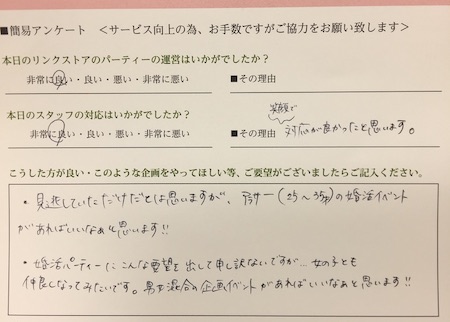 ■簡易アンケート <サービス向上の為、お手数ですがご協力をお願い致します>
本日のリンクストアのパーティーの運営はいかがでしたか?
非常に良い・良い・悪い・非常に悪い
■その理由
本日のスタッフの対応はいかがでしたか?
非常に良い・良い・悪い・非常に悪い
■その理由 笑顔で
対応が良かったと思います。
こうした方が良い・このような企画をやってほしい等、ご要望がございましたらご記入ください。
・見逃していただけだとは思いますが、アラサー(25～35才)の婚活イベント
があればいいなぁと思います!!
・婚活パーティーにこんな要望を出して申し訳ないですが…女の子とも
仲良しなってみたいです。男女混合の企画イベントがあればいいなぁと思います!!